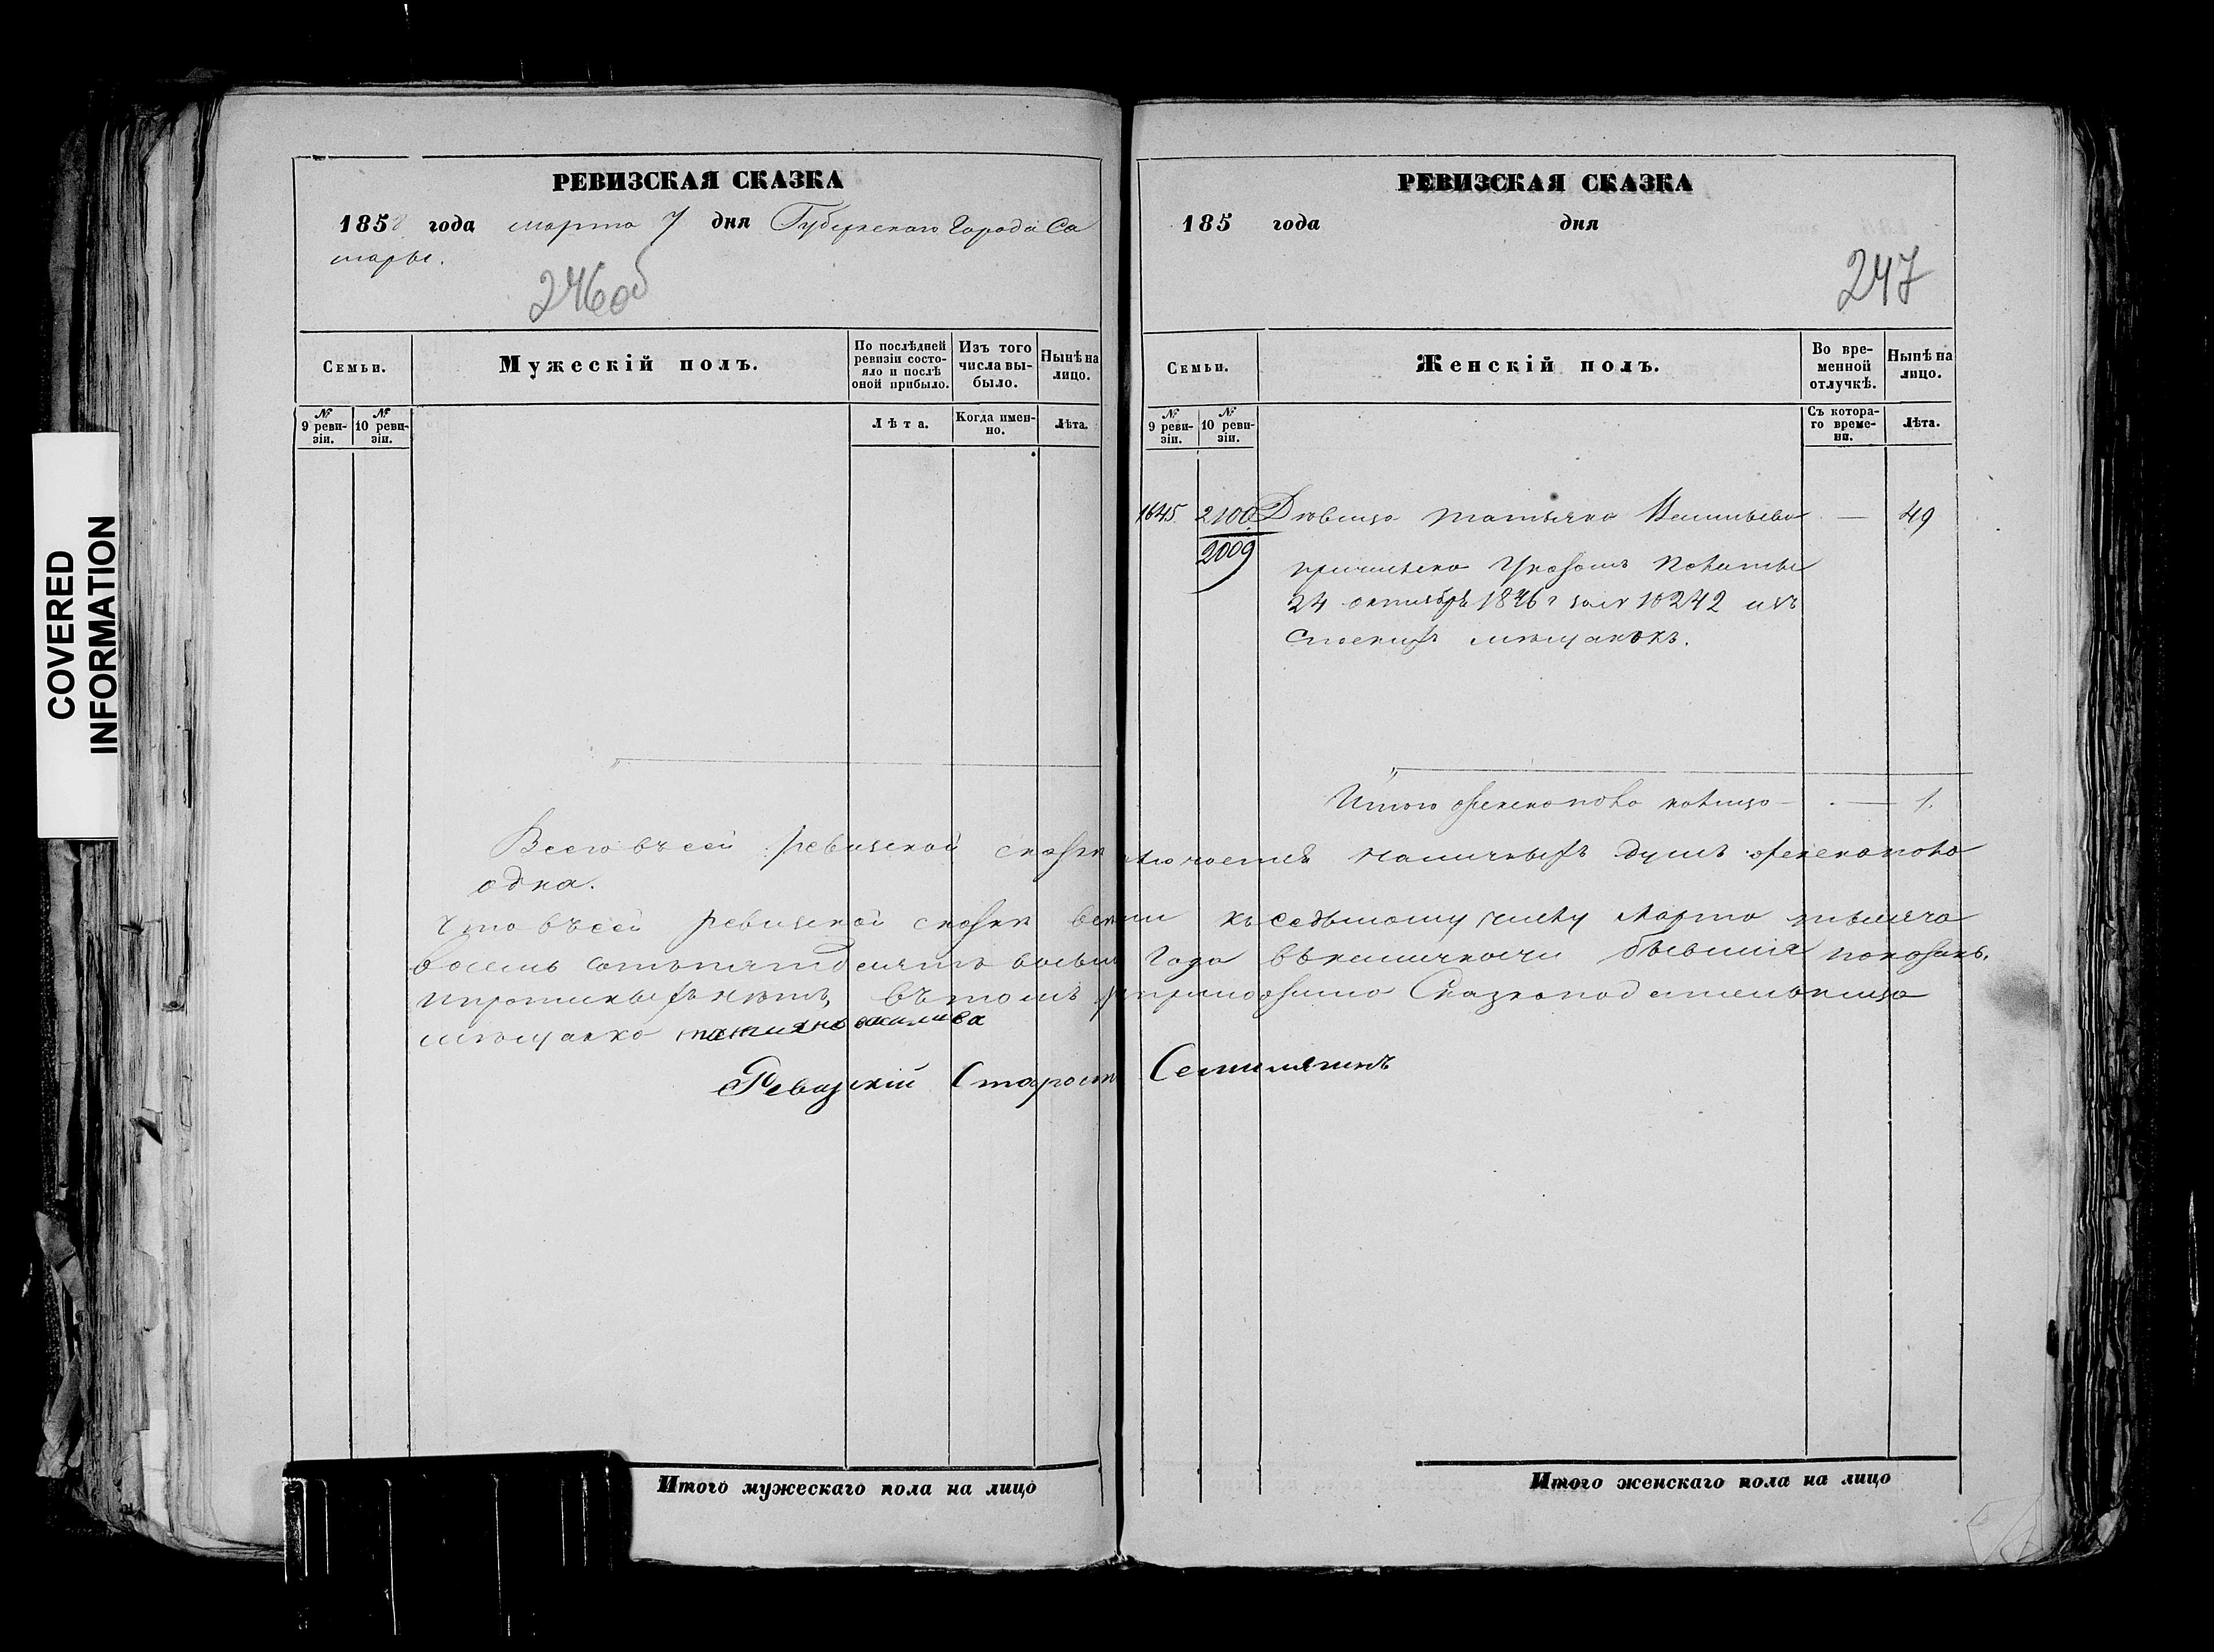 COVERED
INFORMATION
РЕВИЗСКАЯ СКАЗКА
1858 года марта 7 дня Губернскаго Города Са
мары.
246 об
Семьи.
Мужескій полъ.
По послѣдней ревизіи состояло и послѣ оной прибыло.
Изъ того числа выбыло.
Нынѣ на лицо.
№ 9 ревизіи.
№ 10 ревизіи.
Лѣта.
Когда именно.
Лѣта.
РЕВИЗСКАЯ СКАЗКА
185 года дня
247
Семьи.
Женскій полъ.
Во временной отлучкѣ.
Нынѣ на лицо.
№ 9 ревизіи.
№ 10 ревизіи.
Съ котораго времени.
Лѣта.
1645. 2100. Дѣвица Татьяна Васильева — 49
2009
причислена Указомъ Палаты
24 октября 1846 г за № 10242 изъ
мѣщанокъ.
Итого женска пола на лицо — 1.
Всего въ сей ревизской сказкѣ наличныхъ душъ женска пола
одна.
Что въ сей ревизской сказкѣ всѣ къ седьмому числу Марта тысяча
восемь сотъ пятдесятъ восьм Года въ наличности бывшія показаны.
и прописныхъ нѣтъ, въ томъ Сказкоподательница
мѣщанка татияна василива
Ревизскій Староста
Итого мужескаго пола на лицо
Итого женскаго пола на лицо